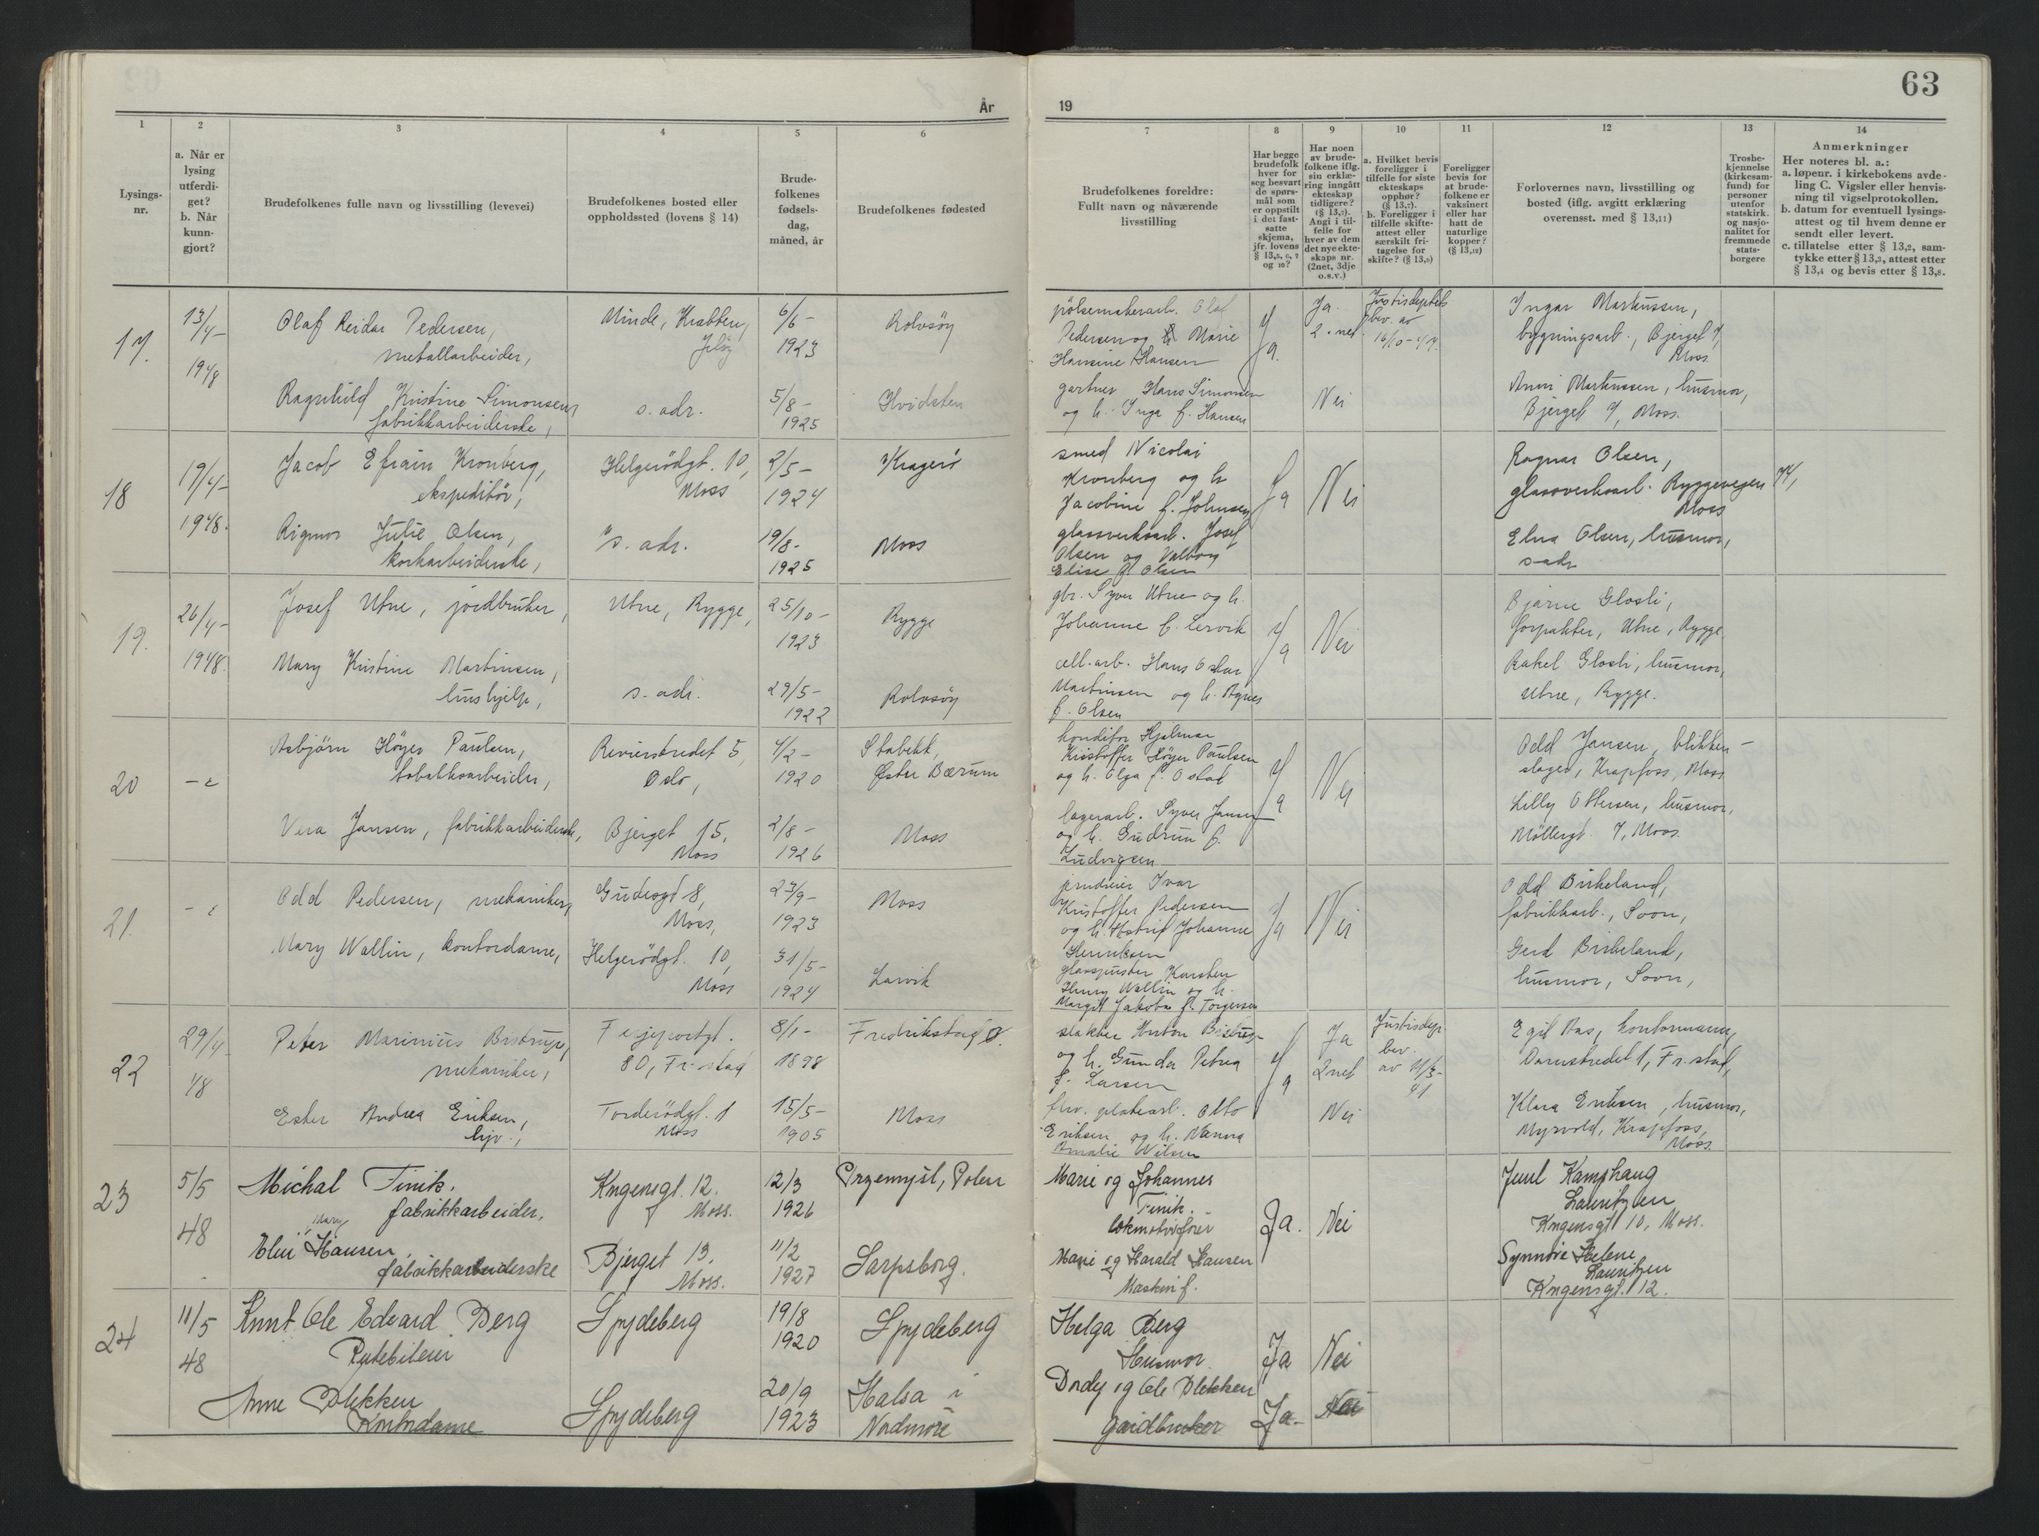 63
År
19
1
2
3
4
5
6
7
8
9
10
11
12
13
14
Lysings-
nr.
a. Når er
lysing
utferdi-
get?
b. Når
kunn-
gjort?
Brudefolkenes fulle navn og livsstilling (levevei)
Brudefolkenes bosted eller
oppholdssted (lovens § 14)
Brude-
folkenes
fødsels-
dag,
måned, år
Brudefolkenes fødested
Brudefolkenes foreldre:
Fullt navn og nåværende
livsstilling
Har begge
brudefolk
hver for
seg besvart
de spørs-
mål som
er oppstilt
i det fast-
satte
skjema,
jfr. lovens
Har noen
av brude-
folkene iflg.
sin erklæ-
ring inngått
ekteskap
tidligere?
(§ 13,2).
Angi i til-
felle for
hver av dem
det nye ekte-
skaps nr.
(2net, 3dje
o.s.v.)
a. Hvilket bevis
foreligger i
tilfelle for siste
ekteskaps
opphør?
(§ 13,7).
b. Foreligger i
tilfelle skifte-
attest eller
særskilt fri-
tagelse for
skifte? (§ 13,8)
Foreligger
bevis for
at brude-
folkene er
vaksinert
eller har
hatt de
naturlige
kopper?
(§ 13,12)
Forlovernes navn, livsstilling og
bosted (iflg. avgitt erklæring
overensst. med § 13,11)
Trosbe-
kjennelse
(kirkesam-
fund) for
personer
utenfor
statskirk.
og nasjo-
nalitet for
fremmede
stats-
borgere
Anmerkninger
Her noteres bl. a.:
a. løpenr. i kirkebokens avde-
ling C. Vigsler eller henvis-
ning til vigselprotokollen.
b. datum for eventuell lysings-
attest og til hvem denne er
sendt eller levert.
c. tillatelse etter § 13,2, sam-
tykke etter § 13,3, attest etter
§ 13,4 og bevis etter § 13,8.
17.
13/4-
1948
Olaf Reidar Pedersen,
metallarbeider,
Minde, Krabben,
Jeløy
6/6-
1923
Rolvsøy
pölsemakerarb. Olaf
Pedersen og Marie
Hansine Hansen
Ja.
Ja.
2. net.
Justisdeptets
bev. av
16/10-47.
Ingar Martinssen,
bygningsarb., Bjerget 7,
Moss
Ragnhild Kristine Simonsen,
fabrikkarbeiderske,
s. adr.
5/8-
1925
Hvidsten
gartner Hans Simonsen
og h. Inga f. Hansen
Nei
Anni Martinssen, husmor,
Bjerget 7, Moss.
18
19/4-
1948.
Jacob Efraim Kronberg,
ekspeditör,
Helgerödgt. 10,
Moss
2/5-
1924
Kragerö
smed Nicolai
Kronberg og h
Jacobine f. Johnsen
Ja
Nei
Ragnar Olsen,
glassverksarb. Ryggevegen 74,
Moss
Rigmor Julie Olsen,
korkarbeiderske,
s. adr.
19/8-
1925
Moss
glassverksarb. Josef
Olsen og Valborg
Elise f. Olsen
Elna Olsen, husmor,
s. adr
19.
26/4-
1948.
Josef Utne, jordbruker,
Utne, Rygge,
25/10-
1923
Rygge
gbr. Syver Utne og h.
Johanne f. Lervik
Ja
Nei
Bjarne Glosli,
forpakter, Utne, Rygge.
Mary Kristine Martinsen,
hushjelp,
s. adr.
29/5-
1922
Rolvsöy
cell.arb. Hans Oskar
Martinsen og h. Agnes
f. Olsen
Rakel Glosli, husmor,
Utne, Rygge.
20
Asbjörn Höyer Paulsen,
tobakksarbeider,
Revierstredet 5,
Oslo,
4/2-
1920
Stabekk,
Øster Bærum
konditor Hjalmar
Kristoffer Höyer Paulsen
og h. Olga f. Ostad
Ja
Nei
Odd Jansen, blikken-
slager, Krapfoss, Moss
Vera Jansen, fabrikkarbeiderske,
Bjerget 15,
Moss
2/8-
1926
Moss
lagerarb. Syver Jansen
og h. Gudrun f.
Ludvigsen
Lilly Ottersen, husmor,
Möllergt. 7, Moss.
21.
Odd Pedersen, mekaniker,
Gudesgt 8,
Moss,
27/9-
1923
Moss
Ivar
Kristoffer Pedersen
og h. Astrid Johanne
Henriksen
Ja
Nei
Odd Birkeland,
fabrikkarb., Soon,
Mary Wallin, kontordame,
Helgerödgt. 10,
Moss
31/5-
1924
Larvik
glasspuster Karsten
Henry Wallin og h.
Margit Jakoba f. Torgersen
Gerd Birkeland,
husmor, Soon,
22
29/4-
48
Peter Marinius Bistrup,
mekaniker,
Fergeportgt.
80, Fr.stad
8/1-
1898
Fredrikstad
stakker Anton Bistrup
og h. Gunda Petrea
f. Larsen
Ja
Ja
2net
Justisdep.
bev.
av 11/3-
41
Egil Aas, kontormann,
Damstredet 1, Fr.stad,
Ester Andrea Eriksen,
hjv.,
Torderödgt. 1
Moss
15/5-
1905
Moss
fhv. platearb. Otto
Eriksen og h. Nanna
Amalie Wilsen
Nei
Klara Eriksen, husmor,
Myrvold, Krapfoss,
Moss.
23
5/5
48
Michal Finik.
fabrikkarbeider.
Kngensgt. 12.
Moss.
12/3
1926
Przemysl, Polen
Marie og Johannes
Finik.
lokmotivfører
Ja.
Nei
Juul Kamphaug
Lauritzen
Kngensgt 10, Moss.
Mary
Elin Hansen,
fabrikkarbeiderske
Bjerget 13.
Moss.
11/2
1927
Sarpsborg.
Marie og Harald Hansen
Maskinf.
Synnöve Helene
Lauritzen
Kngensgt. 12.
24
11/5
48
Knut Ole Edvard Berg
Rutebileier
Spydeberg
19/8
1920
Spydeberg
Helga Berg
Husmor.
Ja
Nei
Anne Blekken
Kontordame
Spydeberg
20/9
1923
Halsa i
Nordmöre
Dordy og Ole Blekken
Gardbruker
Ja.
Nei